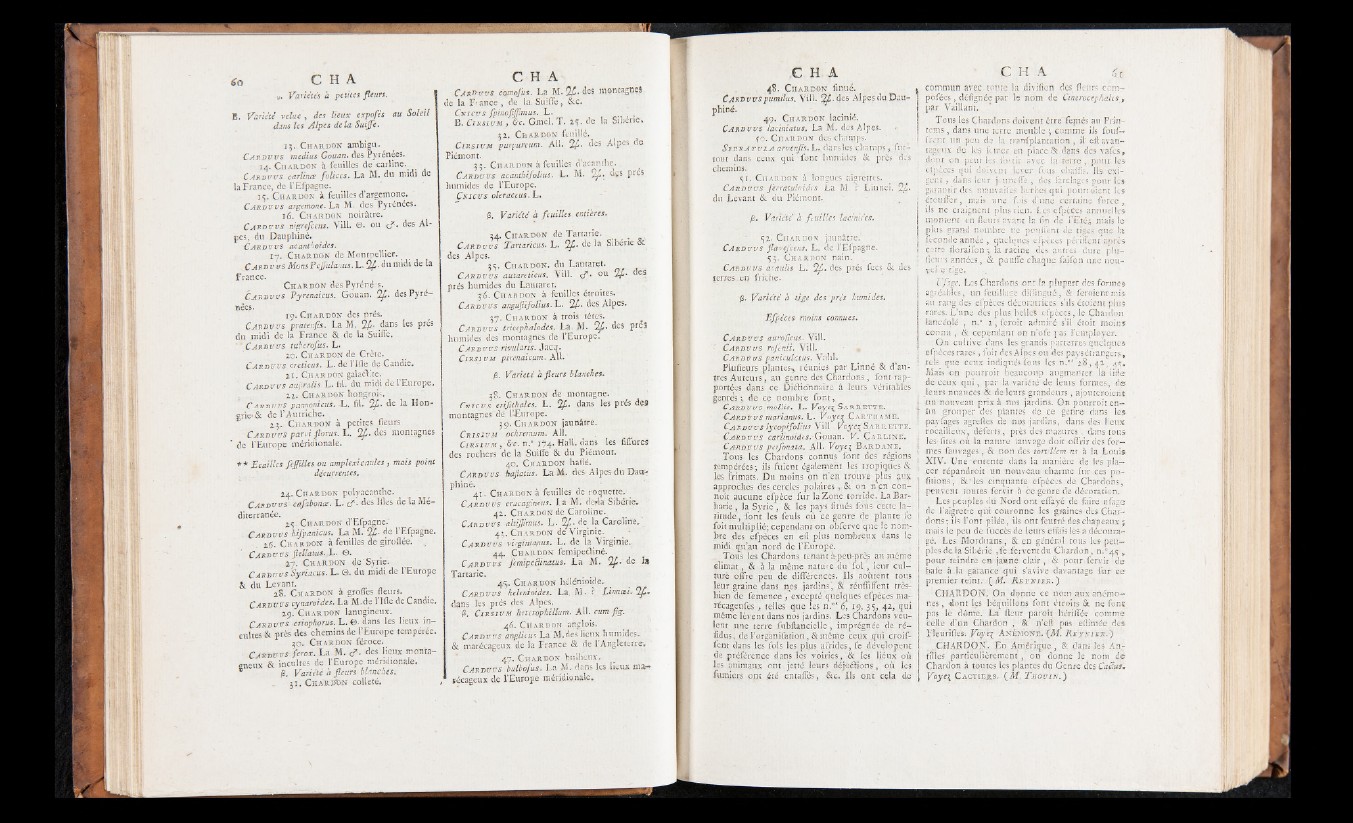 60 C H A
α. Variétés à petites fleurs.
B. Variété velue, des lieux exposés au Soleil
dans les Alpes de la Suisse.
13. CHARDON ambigu.
CARDUUS medius Gouan. des Pyrénées.
14. CHARDON à feuilles de carline.
CARDUUS carlinæ folices. La M. du midi de
la France, de l'Espagne.
15. CHARDON à feuilles d'argemone.
CARDUUS argemone. La M. des Pyrénées.
16. CHARDON noirâtre.
CARDUUS nigrescens. Vill. ☉. ou ♂. des Al-
pes, du Dauphiné.
CARDUUS acanthoides.
17. CHARDON de Montpellier.
CARDUUS Mons Pessulanus. L. ♃. du midi de la
France.
CHARDON des Pyrénées.
CARDUUS Pyrenaicus. Gouan. ♃. des Pyré-
nées.
19. CHARDON des prés.
CARDUUS pratensis. La M. ♃. dans les prés
du midi de la France & de la Suisse.
CARDUUS tuberosus. L.
20. CHARDON de Crète.
CARDUUS creticus. L. de l'Isle de Candie.
21. CHARDON galactite.
CARDUUS australis L. fil. du midi de l'Europe.
22. CHARDON hongrois.
CARDUUS pannonicus. L. fil. ♃. de la Hon-
grie & de l'Autriche.
23. CHARDON à petites fleurs.
CARDUUS parvi florus. L. ♃. des montagnes
de l'Europe méridionale.
** Ecailles sessilles ou amplexicaules, mais point
décurrentes.
24. CHARDON polyacanthe.
CARDUUS casabonæ. L. ♂. des Isles de la Mé-
diterranée.
25. CHARDON d'Espagne.
CARDUUS hispanicus. La M. ♃. de l'Espagne.
26. CHARDON à feuilles de giroflée.
CARDUUS stellatus. L. ☉.
27. CHARDON de Syrie.
CARDUUS Syriacus. L. ☉. du midi de l'Europe
& du Levant.
28. CHARDON à grosses fleurs.
CARDUUS cynaroides. La M. de l'Isle de Candie.
29. CHARDON lanugineux.
CARDUUS eriophorus. L. ☉. dans les lieux in-
cultes & près des chemins de l'Europe tempérée.
30. CHARDON féroce.
CARDUUS ferox. La M. ♂. des lieux monta-
gneux & incultes de l'Europe méridionale.
β. Variété à fleurs blanches.
31. CHARDON colleté.
C H A
CARDUUS comosus. La M. ♃. des montagnes
de la France, de la Suisse, &c.
CNICUS spinosissimus. L.
B. CIRSIUM, &c. Gmel. T. 25. de la Sibérie.
32. CHARDON feuillé.
CIRSIUM purpureum. All. ♃. des Alpes du
Piémont.
33. CHARDON à feuilles d'acanthe.
CARDUUS acanthifolius. L. M. ♃. des prés
humides de l'Europe.
CNICUS oleraceus. L.
β. Variété à feuilles entières.
34. CHARDON de Tartarie.
CARDUUS Tartaricus. L. ♃. de la Sibérie &
des Alpes.
35. CHARDON du Lautaret.
CARDUUS autareticus. Vill. ♂. ou ♃. des
prés humides du Lautaret.
36. CHARDON à feuilles étroites.
CARDUUS angustifolius. L. ♃. des Alpes.
37. CHARDON à trois têtes.
CARDUUS tricephalodes. La M. ♃. des prés
humides des montagnes de l'Europe.
CARDUUS rivularis. Jacq.
CIRSIUM pirenaicum. All.
β. Variété à fleurs blanches.
38. CHARDON de montagne.
CNICUS erisithales. L. ♃. dans les prés des
montagnes de l'Europe.
39. CHARDON jaunâtre.
CRISIUM ochrenum. All.
CIRSIUM, &c. n.° 174. Hall. dans les fissures
des rochers de la Suisse & du Piémont.
40. CHARDON hasté.
CARDUUS hastatus. La M. des Alpes du Dau-
phiné.
41. CHARDON à feuilles de roquette.
CARDUUS erucagineus. La M. de la Sibérie.
42. CHARDON de Caroline.
CARDUUS altissimus. L. ♃. de la Caroline.
43. CHARDON de Virginie.
CARDUUS virginianus. L. de la Virginie.
44. CHARDON semipectiné.
CARDUUS semipectinatus. La M. ♃. de la
Tartarie.
45. CHARDON hélénioïde.
CARDUUS helenioides. La M. ? Linnæi. ♃.
dans les prés des Alpes.
β. CIRSIUM heterophillum. All. cum fig.
46. CHARDON anglois.
CARDUUS anglicus La M. des lieux humides
& marécageux de la France & de l'Angleterre.
47. CHARDON bulbeux.
CARDUUS bulbosus. La M. dans les lieux ma-
récageux de l'Europe méridionale.
C H A
48. CHARDON sinué.
CARDUUS pumilus. Vill. ♃. des Alpes du Dau-
phiné.
49. CHARDON lacinié.
CARDUUS laciniatus. La M. des Alpes.
50. CHARDON des champs.
SERRATULA arvensis. L. dans les champs, sur-
tout dans ceux qui sont humides & près des
chemins.
51. CHARDON à longues aigrettes.
CARDUUS serratuloides La M ? Linnæi. ♃.
du Levant & du Piémont.
β. Variété à feuilles laciniées.
52. CHARDON jaunâtre.
CARDUUS flavescens. L. de l'Espagne.
53. CHARDON nain.
CARDUUS acaulis L. ♃. des prés secs & des
terres en friche.
β. Variété à tige des prés humides.
Espèces moins connues.
CARDUUS aurosicus. Vill.
CARDUUS rosenii. Vill.
CARDUUS paniculatus. Vahl.
Plusieurs plantes, réunies par Linné & d'au-
tres Auteurs, au genre des Chardons, sont rap-
portées dans ce Dictionnaire à leurs véritables
genres; de ce nombre sont,
CARDUUS mollis. L. Voyez SARRETTE.
CARDUUS marianus. L. Voyez CARTHAME.
CARDUUS lycopifolius Vill Voyez SARRETTE.
CARDUUS carlinoides. Gouan. V. CARLINE.
CARDUUS personata. All. Voyez BARDANE.
Tous les Chardons connus sont des régions
tempérées; ils fuient également les tropiques &
les frimats. Du moins on n'en trouve plus aux
approches des cercles polaires, & on n'en con-
noît aucune espèce sur la Zone torride. La Bar-
barie, la Syrie, & les pays situés sous cette la-
titude, sont les seuls où ce genre de plante se
soit multiplié; cependant on observe que le nom-
bre des espèces en est plus nombreux dans le
midi qu'au nord de l'Europe.
Tous les Chardons tenant à-peu-près au même
climat, & à la même nature du sol, leur cul-
ture offre peu de différences. Ils aoûtent tous
leur graine dans nos jardins, & réussissent très-
bien de semence, excepté quelques espèces ma-
récageuses, telles que les n.os 6, 19, 35, 42, qui
même lèvent dans nos jardins. Les Chardons veu-
lent une terre substancielle, imprégnée de ré-
sidus de l'organisation, & même ceux qui crois-
sent dans les sols les plus arides, se dévelopent
de préférence dans les voiries, & les lieux où
les animaux ont jetté leurs déjections, où les
fumiers ont été entassés, &c. Ils ont cela de
C H A 61
commun avec toute la division des fleurs com-
posées, désignée par le nom de Cinarocephales,
par Vaillant.
Tous les Chardons doivent être semés au Prin-
tems, dans une terre meuble; comme ils souf-
frent un peu de la transplantation, il est avan-
tageux de les semer en place & dans des vases,
dont on peut les sortir avec la terre, pour les
espèces qui doivent lever sous chassis. Ils exi-
gent, dans leur jeunesse, des sarclages pour les
garantir des mauvaises herbes qui pourroient les
étouffer, mais une fois d'une certaine force,
ils ne craignent plus rien. Les espèces annuelles
montent en fleurs avant la fin de l'Eté; mais le
plus grand nombre ne poussent de tiges que la
seconde année, quelques espèces périssent après
cette floraison; la racine des autres dure plu-
sieurs années, & pousse chaque saison une nou-
velle tige.
Usage. Les Chardons ont la plupart des formes
agréables, un feuillage distingué, & seroient mis
au rang des espèces décoratrices s'ils étoient plus
rares. L'une des plus belles espèces, le Chardon
lancéolé, n.° 2, seroit admiré s'il étoit moins
connu, & cependant on n'ose pas l'employer.
On cultive dans les grands parterres quelques
espèces rares, soit des Alpes ou des pays étrangers,
tels que ceux indiqués sous les n.os 28, 42, 45.
Mais on pourroit beaucoup augmenter la liste
de ceux qui, par la variété de leurs formes, de
leurs nuances & de leurs grandeurs, ajouteroient
un nouveau prix à nos jardins. On pourroit en-
fin grouper des plantes de ce genre dans les
paysages agrestes de nos jardins, dans des lieux
rocailleux, déserts, près des masures, dans tous
les sites où la nature sauvage doit offrir des for-
mes sauvages, & non des sous l'em ns à la Louis
XIV. Une entente dans la manière de les pla-
cer répandroit un nouveau charme sur ces po-
sitions, & les cinquante espèces de Chardons,
peuvent toutes servir à ce genre de décoration.
Les peuples du Nord ont essayé de faire usage
de l'aigrette qui couronne les graines des Char-
dons: ils l'ont pilée, ils ont feutré des chapeaux;
mais le peu de succès de leurs essais les a découra-
gé. Les Morduans, & en général tous les peu-
ples de la Sibérie, se servent du Chardon, n.° 45,
pour teindre en jaune clair, & pour servir de
base à la garance qui s'avive davantage sur ce
premier teint. (M. REYNIER.)
CHARDON. On donne ce nom aux anémo-
nes, dont les béquillons sont étroits & ne font
pas le dôme. La fleur paroît hérissée comme
celle d'un Chardon, & n'est pas estimée des
Fleuristes. Voyez ANÉMONE. (M. REYNIER.)
CHARDON. En Amérique, & dans les An-
tilles particulièrement, on donne le nom de
Chardon à toutes les plantes du Genre des Cactus.
Voyez CACTIERS. (M. THOUIN.)